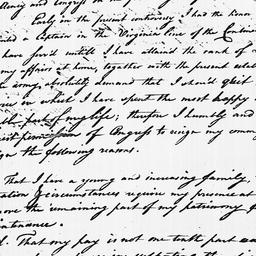 and Congress on the
Early in the present controversy I had the honor
a Captain in the Virginia line of the Continen
have serv'd untill I have attained the rank of
my affairs at home, together with the present esta
the army, absolutely demand that I should quit
in which I have spent the most happy
part of my life; therefore I humbly and
permission of Congress to resign my comm
the following reasons.
That I have a young and increasing family,
circumstances require my presence at
the remaining part of my patrimony f
intenance.
That my pay is not one tenth part ea